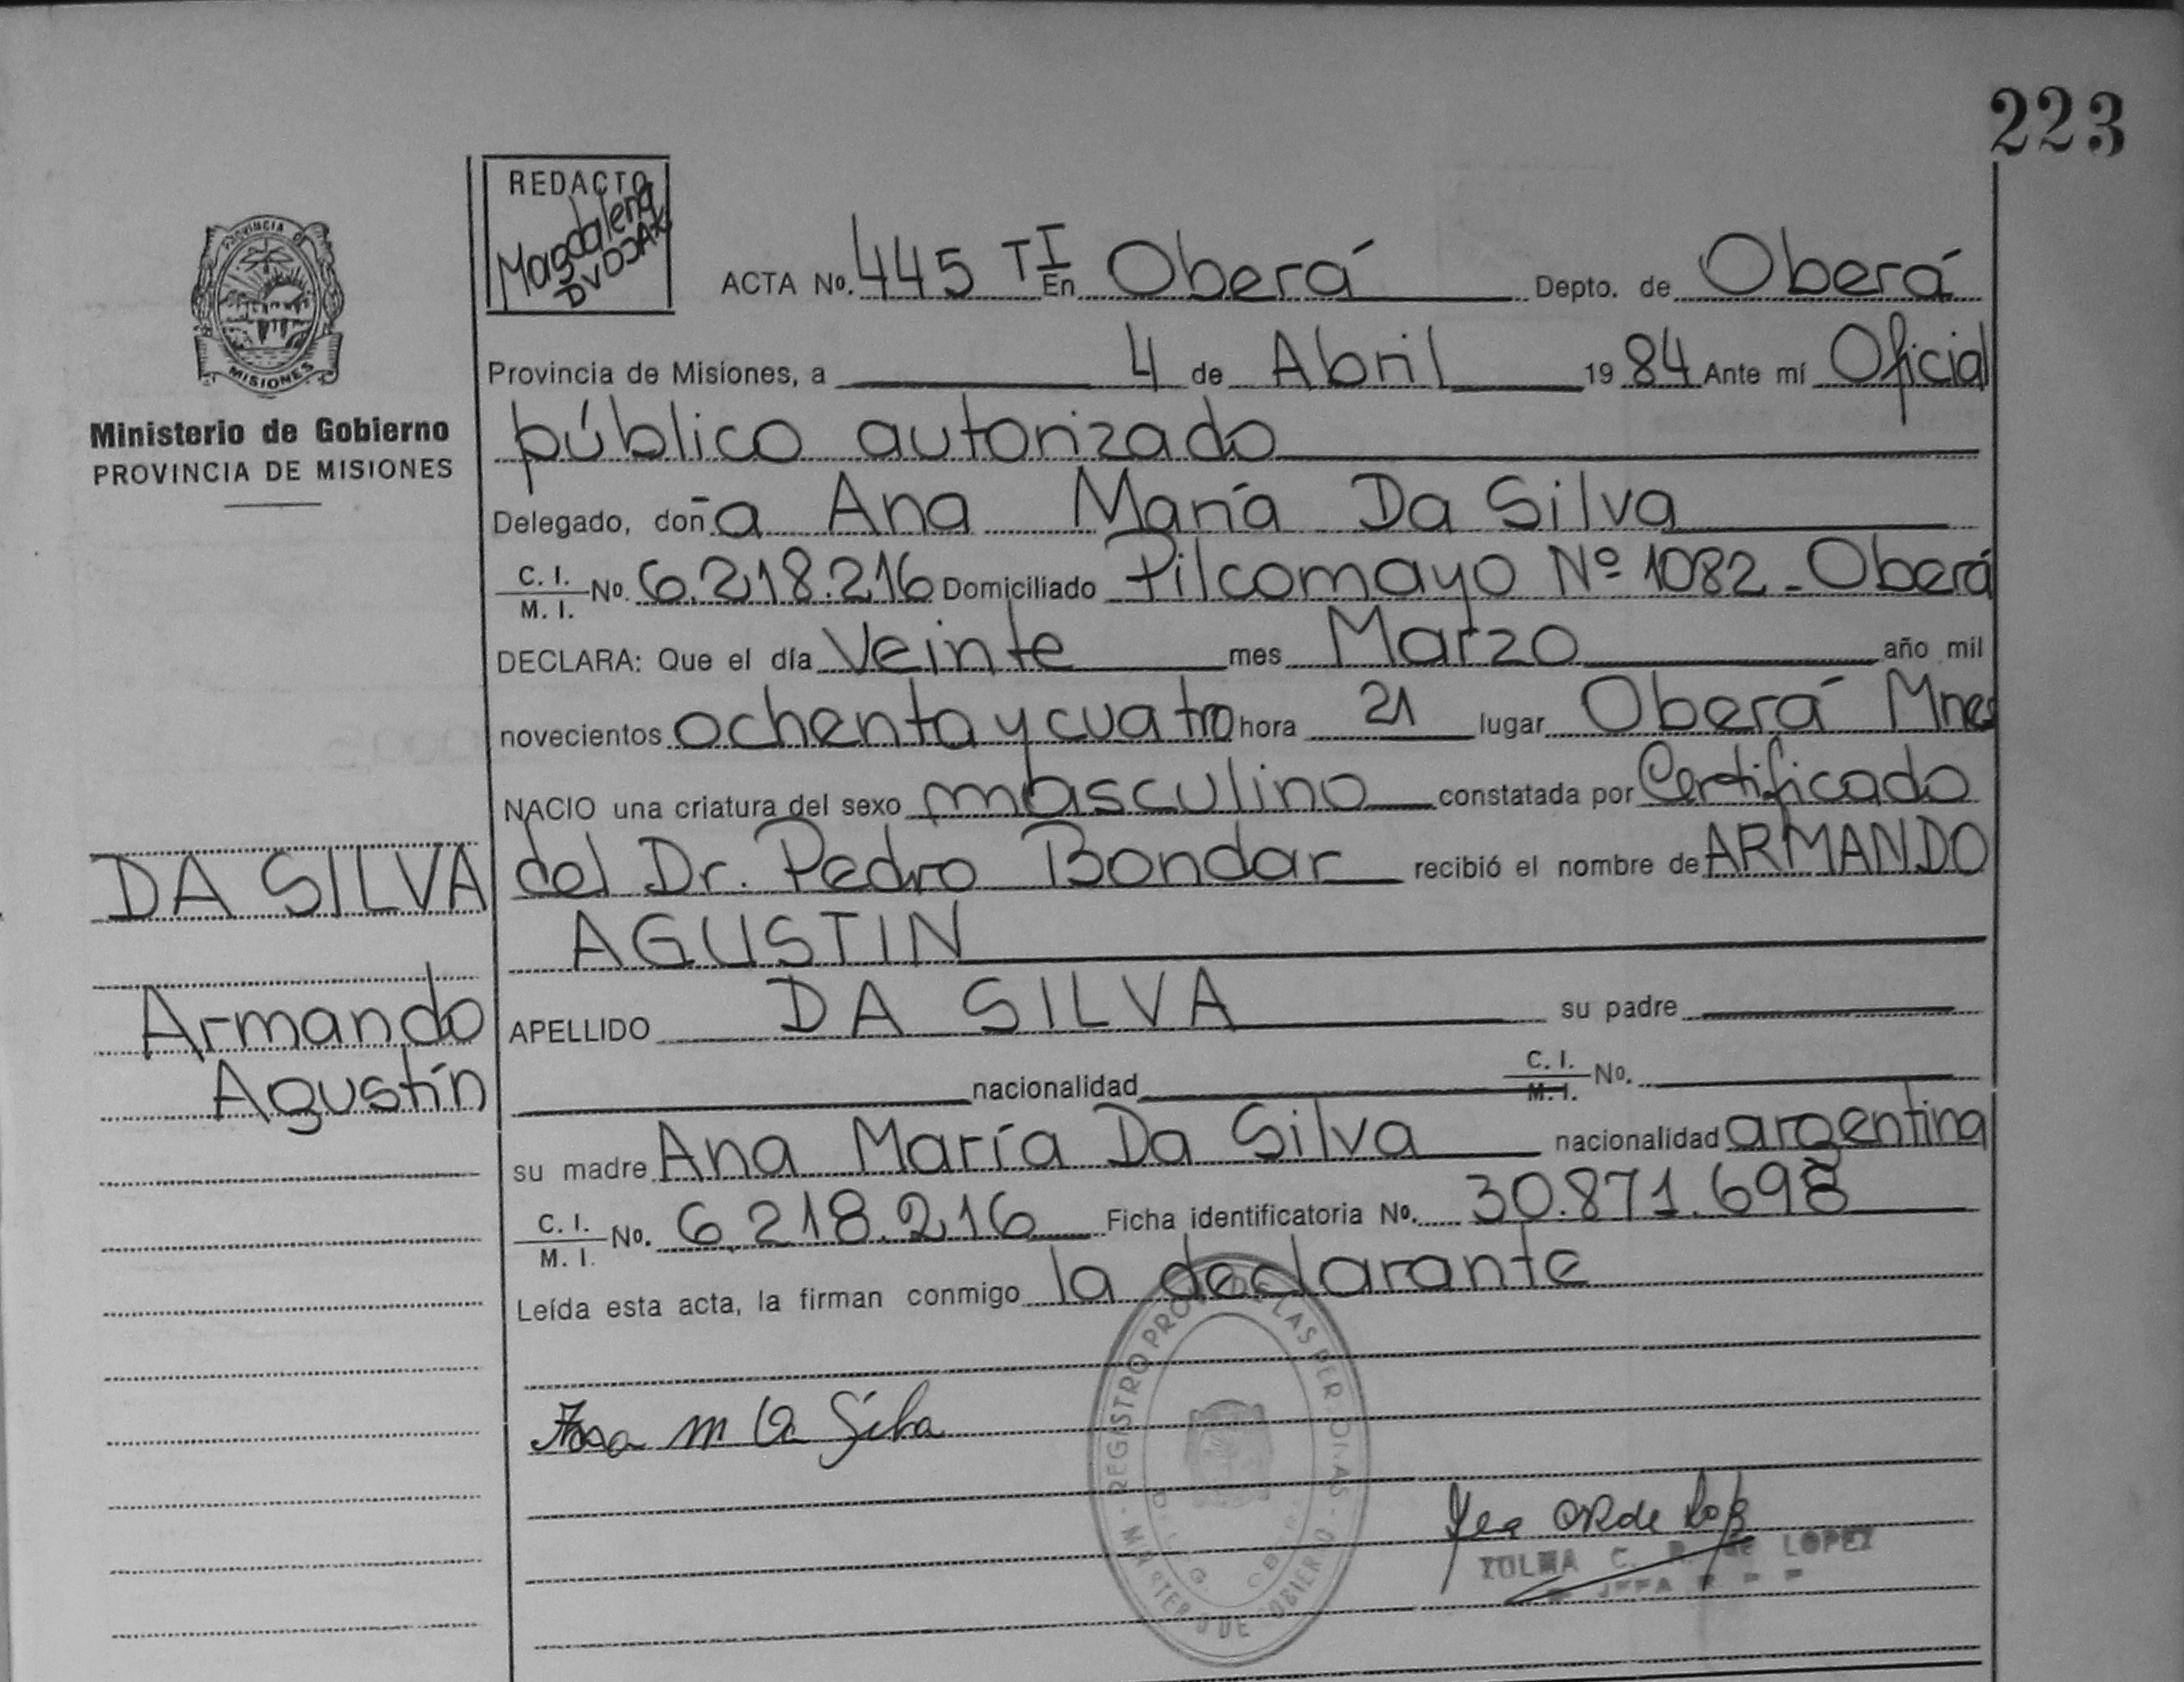 223
REDACTO
Magdalena
PROVINCIA DE
MISIONES
Ministerio de Gobierno
PROVINCIA DE MISIONES
ACTA No. 445 TI En Oberá Depto. de Oberá
Provincia de Misiones, a 4 de Abril 1984 Ante mí Oficial
público autorizado
Delegado, doña Ana María Da Silva
C. I. / M. I. No. 6.218.216 Domiciliado Pilcomayo Nº 1082 - Oberá
DECLARA: Que el día Veinte mes Marzo año mil
novecientos ochenta y cuatro hora 21 lugar Oberá Mnes
NACIO una criatura del sexo masculino constatada por Certificado
del Dr. Pedro Bondar recibió el nombre de ARMANDO
AGUSTIN
APELLIDO DA SILVA su padre
nacionalidad C. I. / M. I. No.
su madre Ana María Da Silva nacionalidad argentina
C. I. / M. I. No. 6.218.216 Ficha identificatoria No. 30.871.698
Leída esta acta, la firman conmigo la declarante
DA SILVA
Armando
Agustín
Ana M Da Silva
REGISTRO PROV. DE LAS PERSONAS
MINISTERIO DE GOBIERNO
C. R. de LOPEZ
JEFA